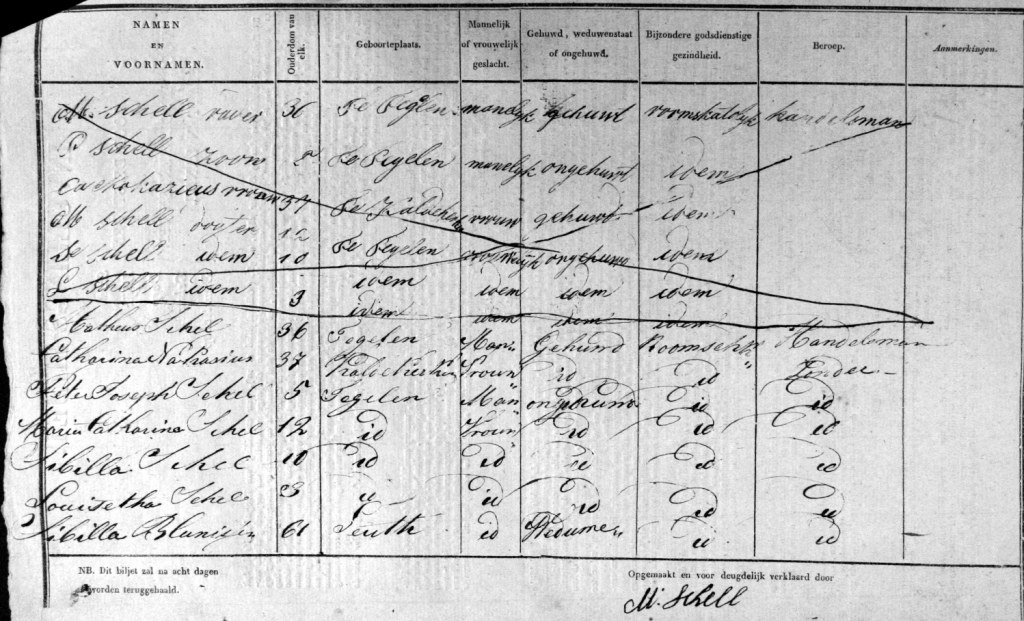 NAMEN EN VOORNAMEN. Ouderdom van elk. Geboorteplaats. Mannelijk of vrouwelijk geslacht. Gehuwd, weduwenstaat of ongehuwd. Bijzondere godsdienstige gezindheid. Beroep. Aanmerkingen.
M. Schell vaver 36 Te Tegelen manelyk gehuwt roomskatolyk handelsman
P Schell zoon 5 Te Tegelen manelyk ongehuwt idem
vrouw 37 Te vrouw gehuwt idem
M Schell 12
Schell idem 10 Te Tegelen ongehuwt idem
L Schell idem 3 idem idem idem idem
idem idem idem idem
Matheus Schel 36 Tegelen Man Gehuwd Roomsch Handelsman
Catharina 37 Kaldekerken Vrouw id id Zonder
Peter Joseph Schel 5 Tegelen Man ongehuwd id id
Maria Catharina Schel 12 id Vrouw id id id
Sibilla Schel 10 id id id id id
Louisetha Schel 3 id id id id id
Sibilla 61 Leuth id Weduwe id id
NB. Dit biljet zal na acht dagen worden teruggehaald.
Opgemaakt en voor deugdelijk verklaard door
M. Schell